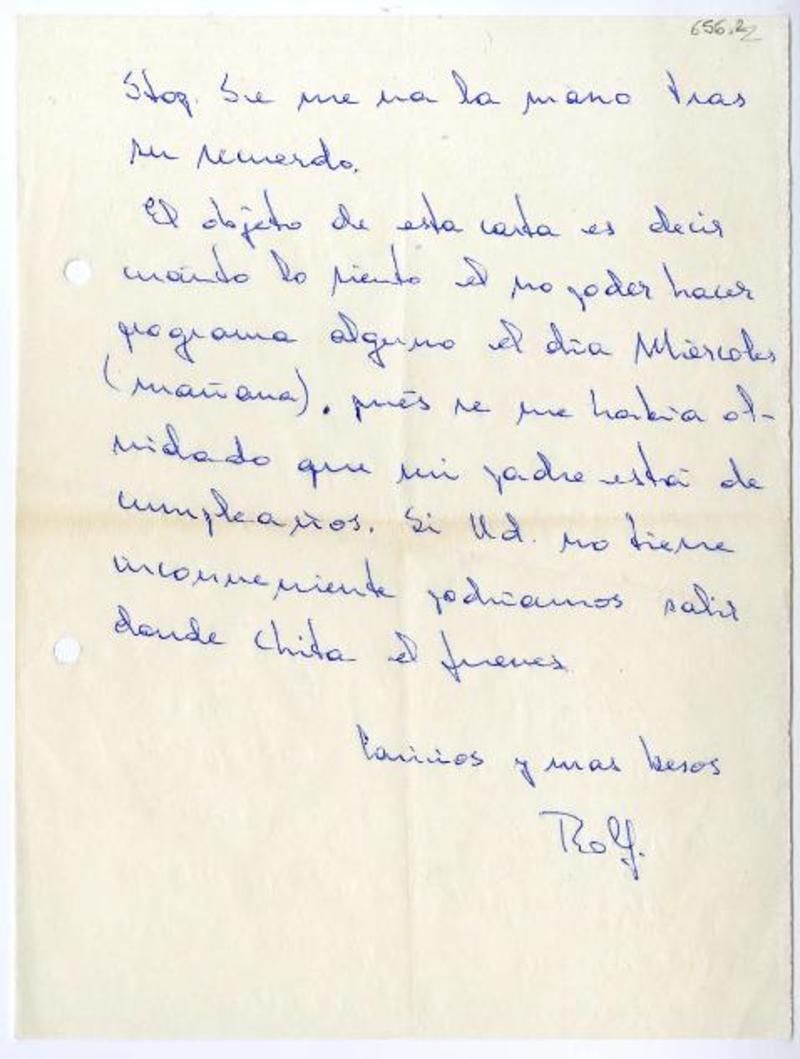 656.2
Stop. Se me va la mano tras
su recuerdo.
El objeto de esta carta es decir
cuánto lo siento el no poder hacer
programa alguno el día Miércoles
(mañana). pués se me había ol-
vidado que mi padre está de
cumpleaños. Si Ud. no tiene
inconveniente podríamos salir
donde Chita el jueves
Cariños y mas besos
Rolf.